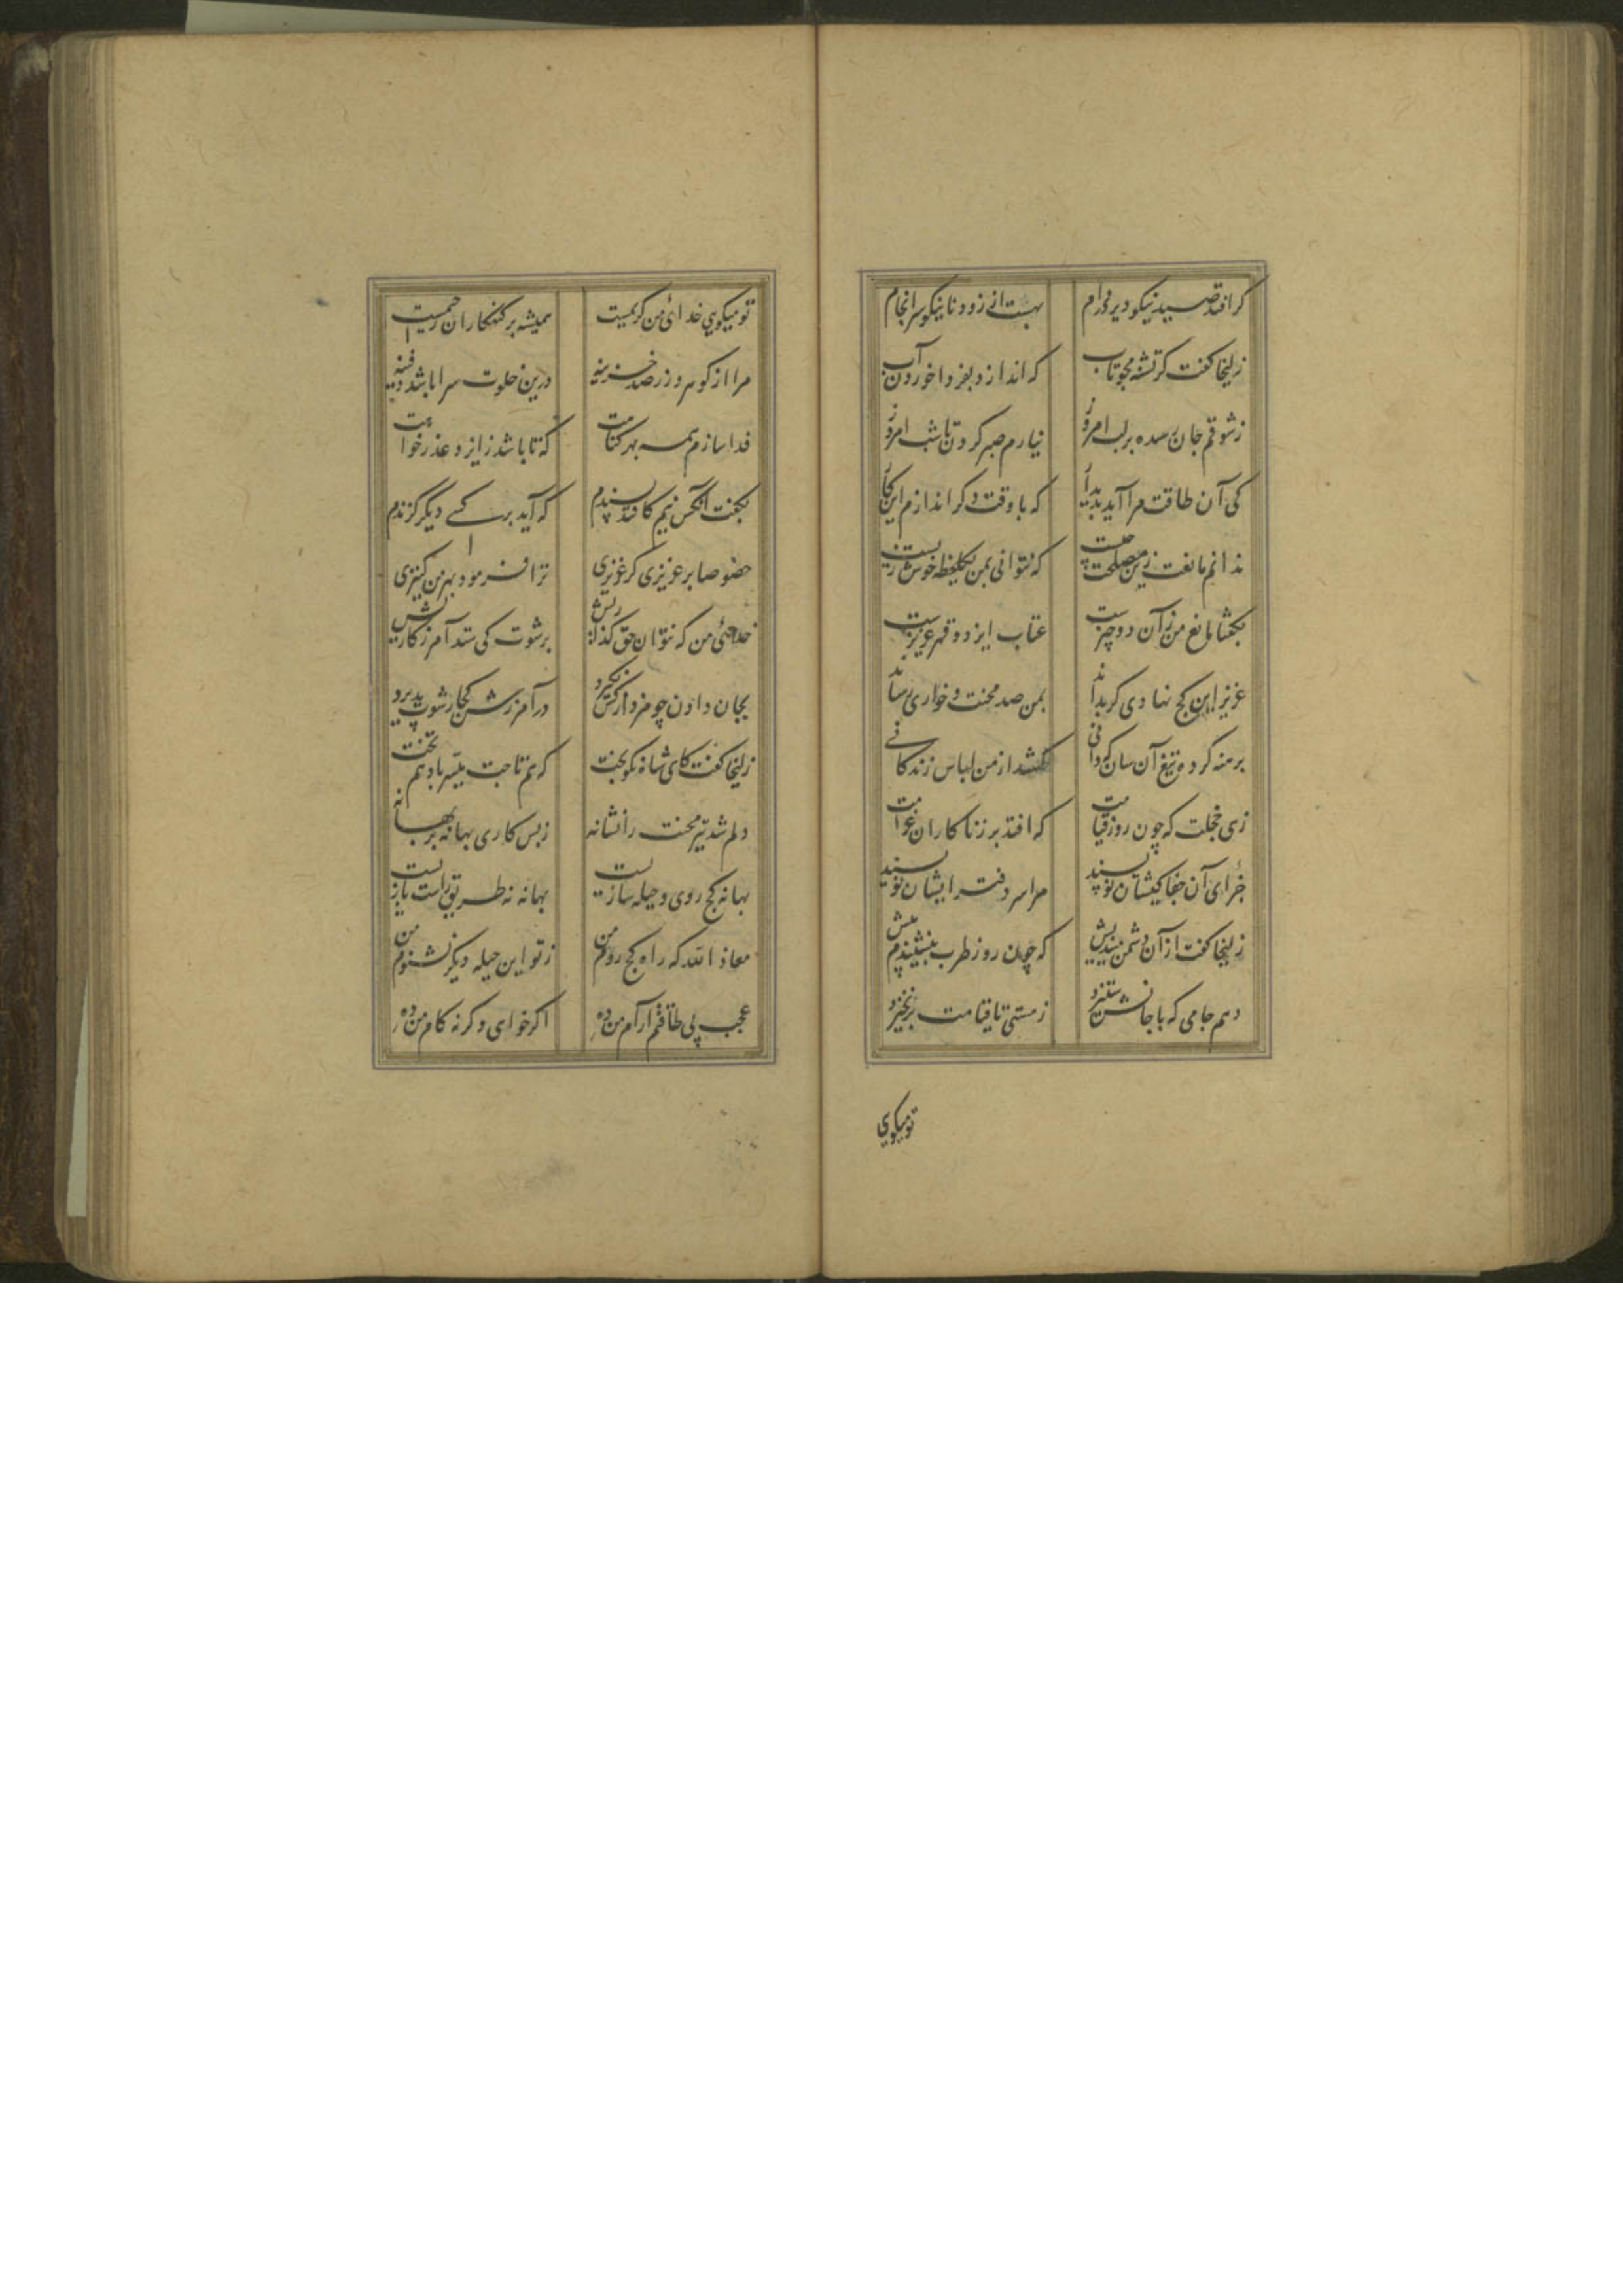 گر افتد صید نیکو دیر در دام بهست از زود نانیکو سرانجام
زلیخا گفت کز تشنه مجو تاب که اندازد بفردا خوردن آب
ز شوقم جان رسیده بر لب امروز نیارم صبر کردن تا شب امروز
کی آن طاقت مرا آید پدیدار که با وقت دگر اندازم این کار
ندانم مانعت زین مصلحت چیست که نتوانی بمن یکلحظه خوش زیست
بگفتا مانع من زآن دو چیزست عتاب ایزد و قهر عزیزست
عزیز این کج نهادی گر بداند بمن صد محنت و خواری رساند
برهنه کرده تیغ آن سان که دانی کشد از من لباس زندگانی
زهی خجلت که چون روز قیامت که افتد بر زناکاران غرامت
جزای آن جفا کیشان نویسند مرا سر دفتر ایشان نویسند
زلیخا گفت از آن دشمن میندیش که چون روز طرب بنشیندم پیش
دهم جامی که با جانش ستیزد ز مستی تا قیامت برنخیزد
تومیگویی
تو میگویی خدای من کریمست همیشه بر گنهکاران رحیمست
مرا از گوهر و زر صد خزینه درین خلوت سرا باشد دفینه
فدا سازم همه بهر گناهت که تا باشد ز ایزد عذر خواهت
بگفت آنکس نیم کافتد پسندم که آید بر کسی دیگر گزندم
خصوصا بر عزیزی کز عزیزی ترا فرمود بهر من کنیزی
خدای من که نتوان حقگذاریش برشوت کی ستد آمرزگاریش
بجان دادن چو مزد از کس نگیرد در آمرزش کجا رشوت پذیرد
زلیخا گفت کای شاه نکوبخت که هم تاجت میسر باد هم تخت
دلم شد تیر محنت را نشانه ز بس کاری بهانه بر بهانه
بهانه کج روی و حیله سازیست بهانه نه طریق راست بازیست
معاذ الله که راه کج روم من ز تو این حیله دیگر نشنوم من
عجب بی طاقتم آرام من ده اگر خواهی وگرنه کام من ده